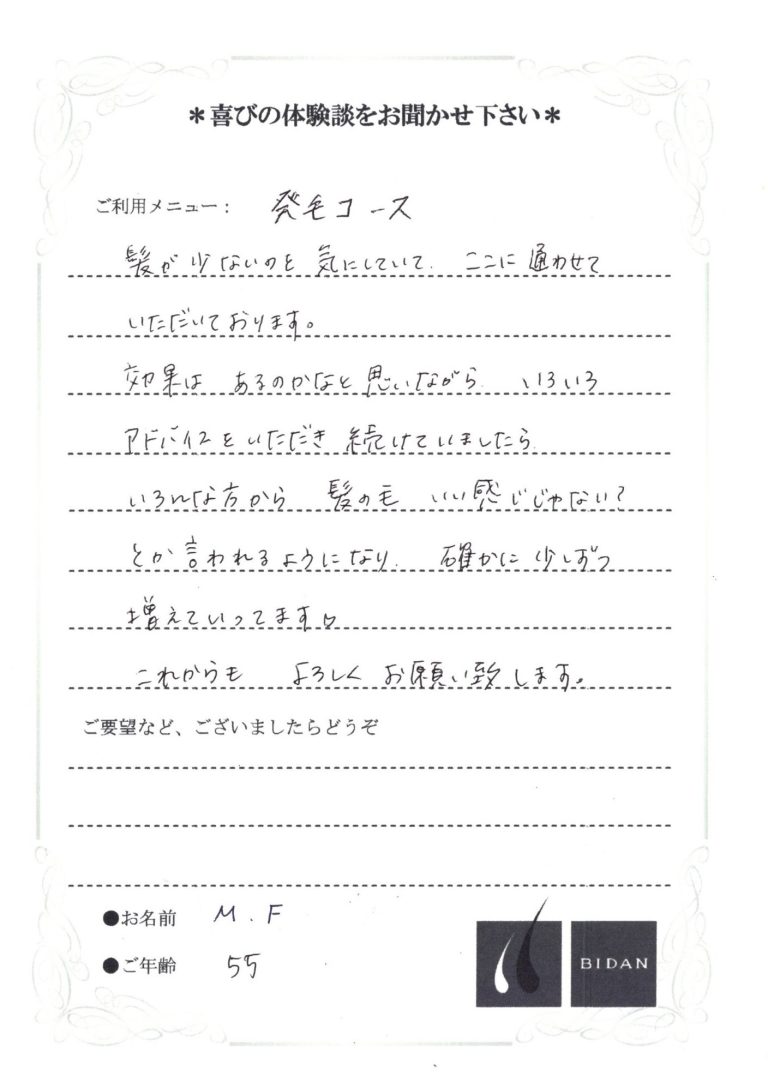 ＊喜びの体験談をお聞かせ下さい＊
ご利用メニュー： 発毛コース
髪が少ないのを気にしていて、ここに通わせて
いただいております。
効果はあるのかなと思いながら、いろいろ
アドバイスをいただき続けていましたら
いろんな方から 髪の毛 いい感じじゃない？
とか言われるようになり、確かに少しずつ
増えていってます♡
これからも よろしくお願い致します。
ご要望など、ございましたらどうぞ
●お名前 M.F
●ご年齢 55
BIDAN